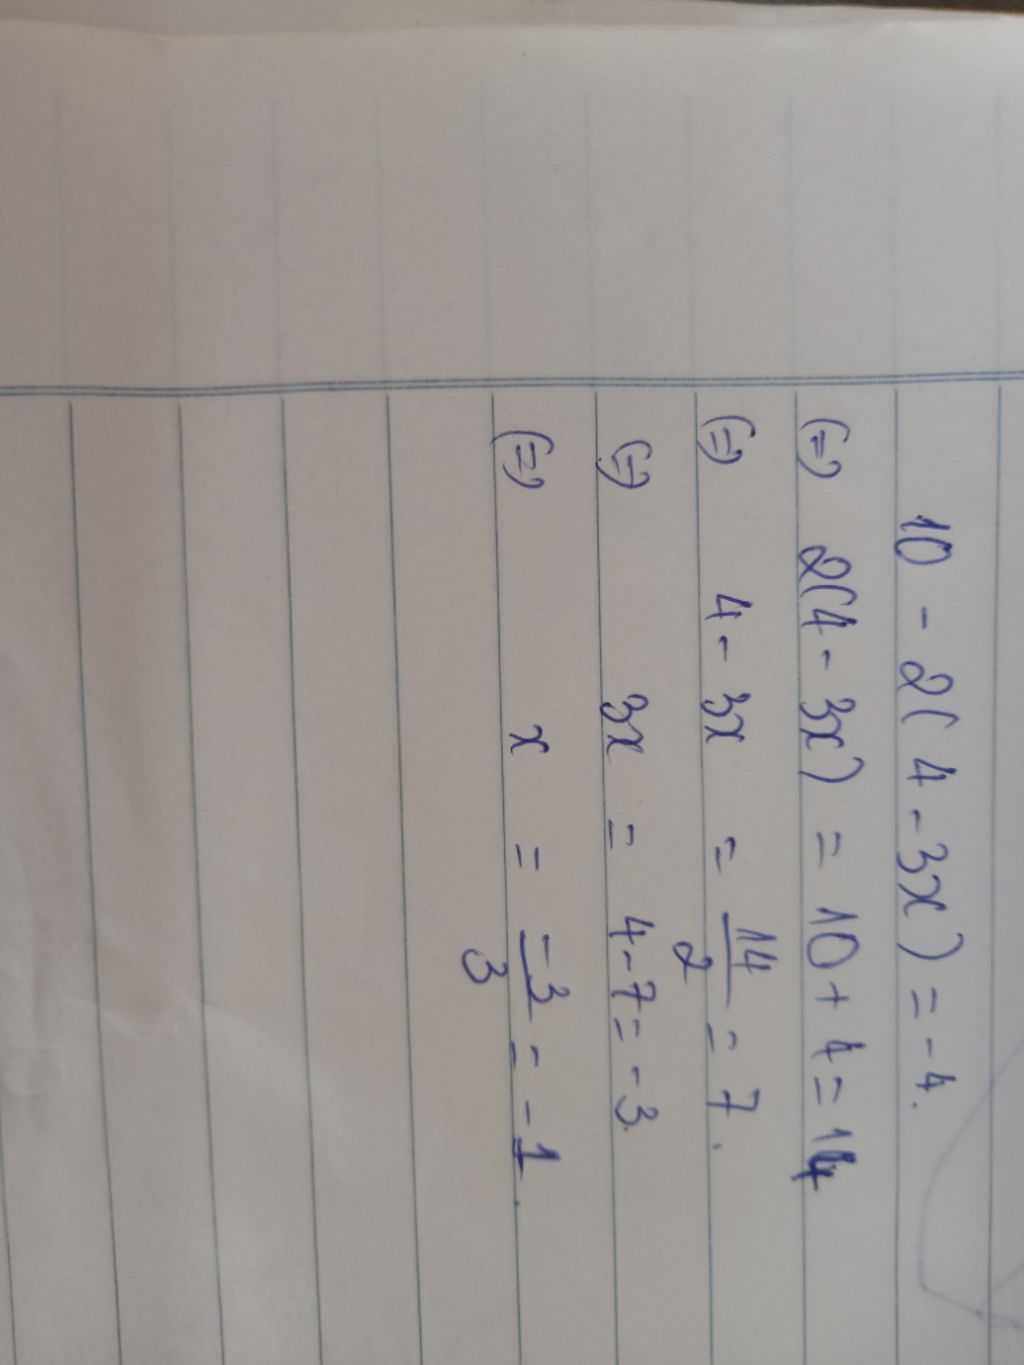 10 - 2(4 - 3x) = -4.
(=) 2(4 - 3x) = 10 + 4 = 14
(=) 4 - 3x = 14/2 = 7.
(=) 3x = 4 - 7 = -3.
(=) x = -3/3 = -1.